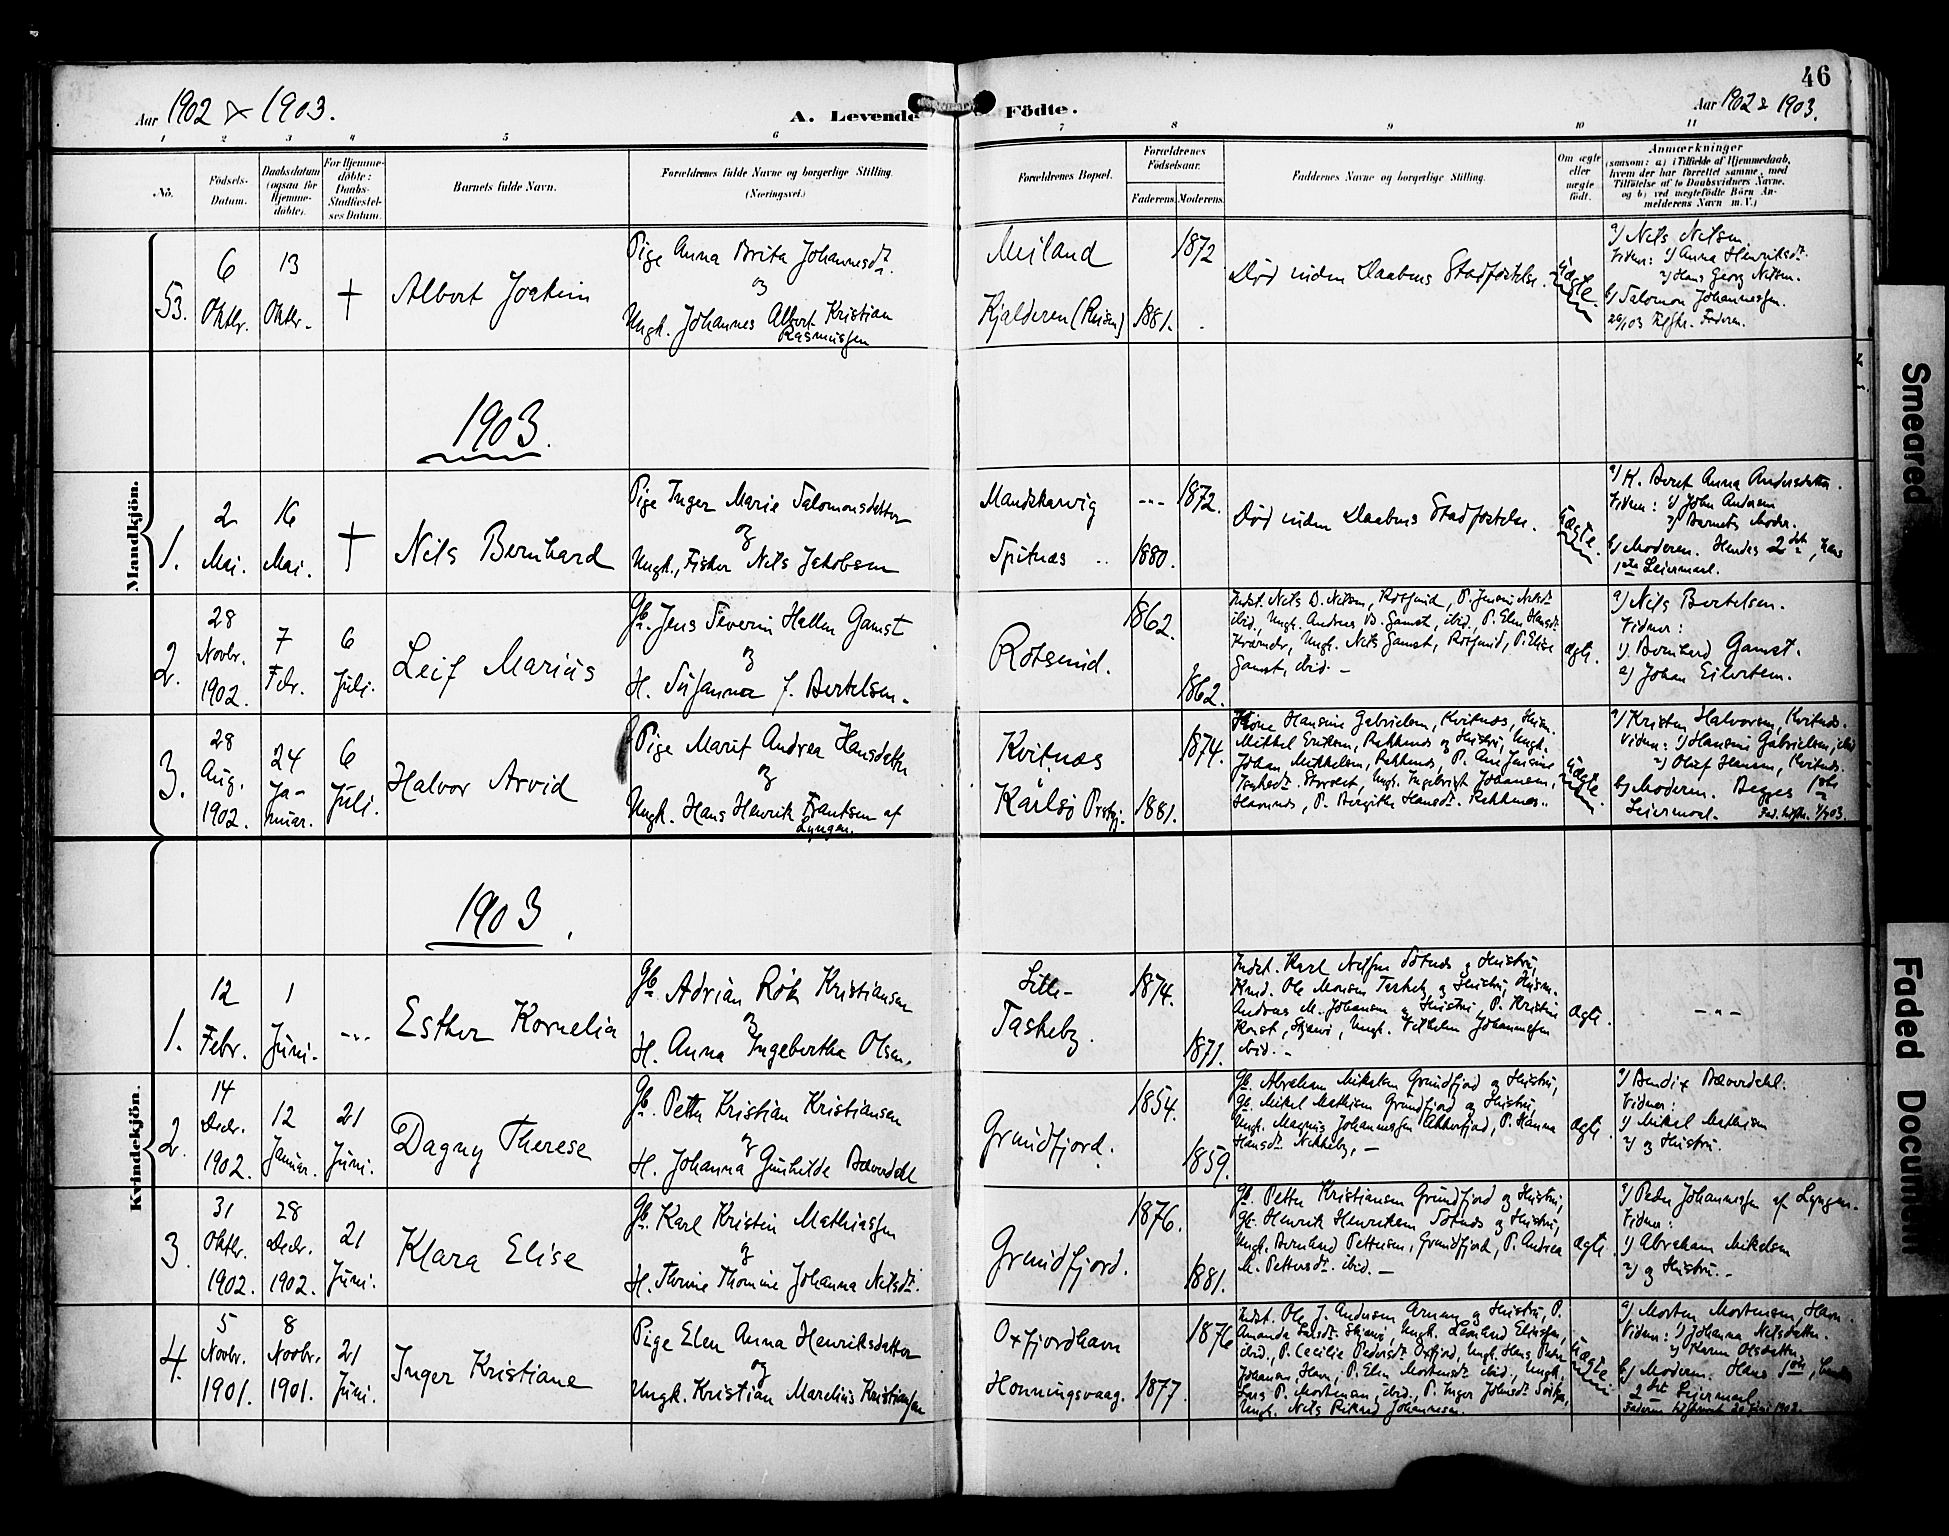 46
Aar 1902 & 1903.
A. Levende Födte.
Aar 1902 & 1903.
1 2 3 4 5 6 7 8 9 10 11
No.
Födsels-Datum.
Daabsdatum (ogsaa for Hjemme-döbte).
For Hjemme-döbte: Daabs-Stadfæstel-ses Datum.
Barnets fulde Navn.
Forældrenes fulde Navne og borgerlige Stilling.
(Næringsvei.)
Forældrenes Bopæl.
Forældrenes Födselsaar.
Faderens. Moderens.
Faddernes Navne og borgerlige Stilling.
Om ægte eller uægte födt.
Anmærkninger
(saasom: a) i Tilfælde af Hjemmedaab,
hvem der har forrettet samme, med
Tilföielse af to Daabsvidners Navne,
og b) ved uægtefödte Börn An-
melderens Navn m. V.)
Mandkjön.
53.
6 Oktbr.
13 Oktbr.
†
Albert Joakim
Pige Anna Brita Johannesdt.
og
Ungk. Johannes Albert Kristian
Rasmussen
Meiland
Kjalderen (Reisen)
1872
1881.
Död inden Daabens Stadfæstelse.
Uægte
a) Nils Nilsen.
Vidner: 1) Anna Henriksdt.
2) Hans Georg Nilsen.
b) Salomon Johannessen.
1903.
1.
2 Mai.
16 Mai.
†
Nils Bernhard
Pige Inger Marie Salomonsdatter
og
Ungk., Fisker Nils Jakobsen
Mandskarvig
Spitnæs
1872.
1880.
Död inden Daabens Stadfæstelse.
Uægte.
a) K. Berit Anna Andersdatter.
Vidner: 1) John Andersen
2) Barnets Moder.
b) Moderen. Hendes 2det, hans
1ste Leiermaal.
2.
28 Novbr. 1902.
7 Febr.
6 Juli.
Leif Marius
Gb. Jens Severin Hallen Gamst
og
H. Susanna f. Bertelsen.
Rotsund.
1862.
1862.
Indst. Nils B. Nilsen, Rotsund, P. Jensine Nilsdt.
ibid., Ungk. Andreas B. Gamst, ibid, P. Elen Hansdt.
Kvænder, Ungk. Nils Gamst, Rotsund, P. Elise
Gamst, ibid. —
ægte.
a) Nils Bertelsen.
Vidner:
1) Bernhard Gamst.
2) Johan Eilertsen.
3.
28 Aug. 1902.
24 Ja-nuar.
6 Juli.
Halvor Arvid
Pige Marit Andrea Hansdatter
og
Ungk. Hans Henrik Frantsen af
Lyngen.
Kvitnæs
Karlsö Prstgj.
1874.
1881.
Kone Hansine Gabrielsen, Kvitnæs, Husm.
Mikkel Eriksen, Rakkenes og Hustru, Ungk.
Johan Mikkelsen, Rakkenes, P. Ane Jensine
Storvoll, Ungk. Ingebrigt Johansen,
Hamnes, P. Birgitte Hansdt. Rakkenes.
Uægte.
a) Kristen Halvorsen, Kvitnæs.
Vidner: 1) Hansine Gabrielsen, ibid
2) Olaf Hansen, Kvitnæs.
b) Moderen. Begges 1ste
Leiermaal.
1903.
Kvindekjön.
1.
12 Febr.
1 Juni.
---
Esther Kornelia
Gb. Adrian Rök Kristiansen
og
H. Anna Ingebertha Olsen.
Lille-
Taskeby.
1874.
1871.
Indst. Karl Nilsen Sotnæs og Hustru,
Ole Monsen Taskeby og Hustru, Husm.
Andreas M. Johansen og Hustru, P. Kristine
Korst, Skjervö, Ungk. Vilhelm Johannesen
ibid. —
ægte.
— " —
2.
14 Decbr. 1902.
12 Januar.
21 Juni.
Dagny Therese
Gb. Petter Kristian Kristiansen
og
H. Johanna Gunhilde Bæverdahl
Grundfjord.
1854.
1859.
Gb. Abraham Mikelsen Grundfjord og Hustru,
Gb. Mikel Mathisen Grundfjord og Hustru,
Ungk. Magnus Johannessen Akkarfjord, P. Hanna
Hansdt. Nikkeby, —
ægte.
a) Bendix Bæverdahl.
Vidner:
1) Mikel Mathisen
2) og Hustru.
3.
31 Oktbr. 1902.
28 Decbr. 1902.
21 Juni.
Klara Elise
Gb. Karl Kristin Mathiassen
og
H. Thomine Johanna Nilsdt.
Grundfjord.
1876.
1881.
Gb. Petter Kristiansen Grundfjord og Hustru,
Gb. Henrik Henriksen Sotnæs og Hustru,
Ungk. Bernhard Pettersen, Grundfjord, P. Andrea
M. Pettersdt. ibid. —
ægte.
a) Peder Johannessen af Lyngen.
Vidner:
1) Abraham Mikelsen
2) og Hustru. -
4.
5 Novbr. 1901.
8 Novbr. 1901.
21 Juni.
Inger Kristiane
Pige Elen Anna Henriksdatter
og
Ungk. Kristian Marelius Kristiansen
Oxfjordhavn
Honningsvaag.
1876
1877.
Indst. Ole J. Andersen Arnøen og Hustru, P.
Amanda Larsdt. Skjervö, Ungk. Leonhard Eliassen,
ibid., P. Cecilie Pedersdt. Oxfjord, Ungk. Hans Peter
Johansen, Havn, P. Elen Mortensdt. ibid., Ungk.
Lars P. Mortensen, ibid., P. Inger Johnsdt.
Ungk. Nils Rikard Johannesen.
Uægte
a) Morten Mortensen, Havn.
Vidner: 1) Johanna Nilsdatter.
2) Karen Olsdatter.
b) Moderen. Hans 1ste, hendes
2det Leiermaal.
Smeared
Faded Document